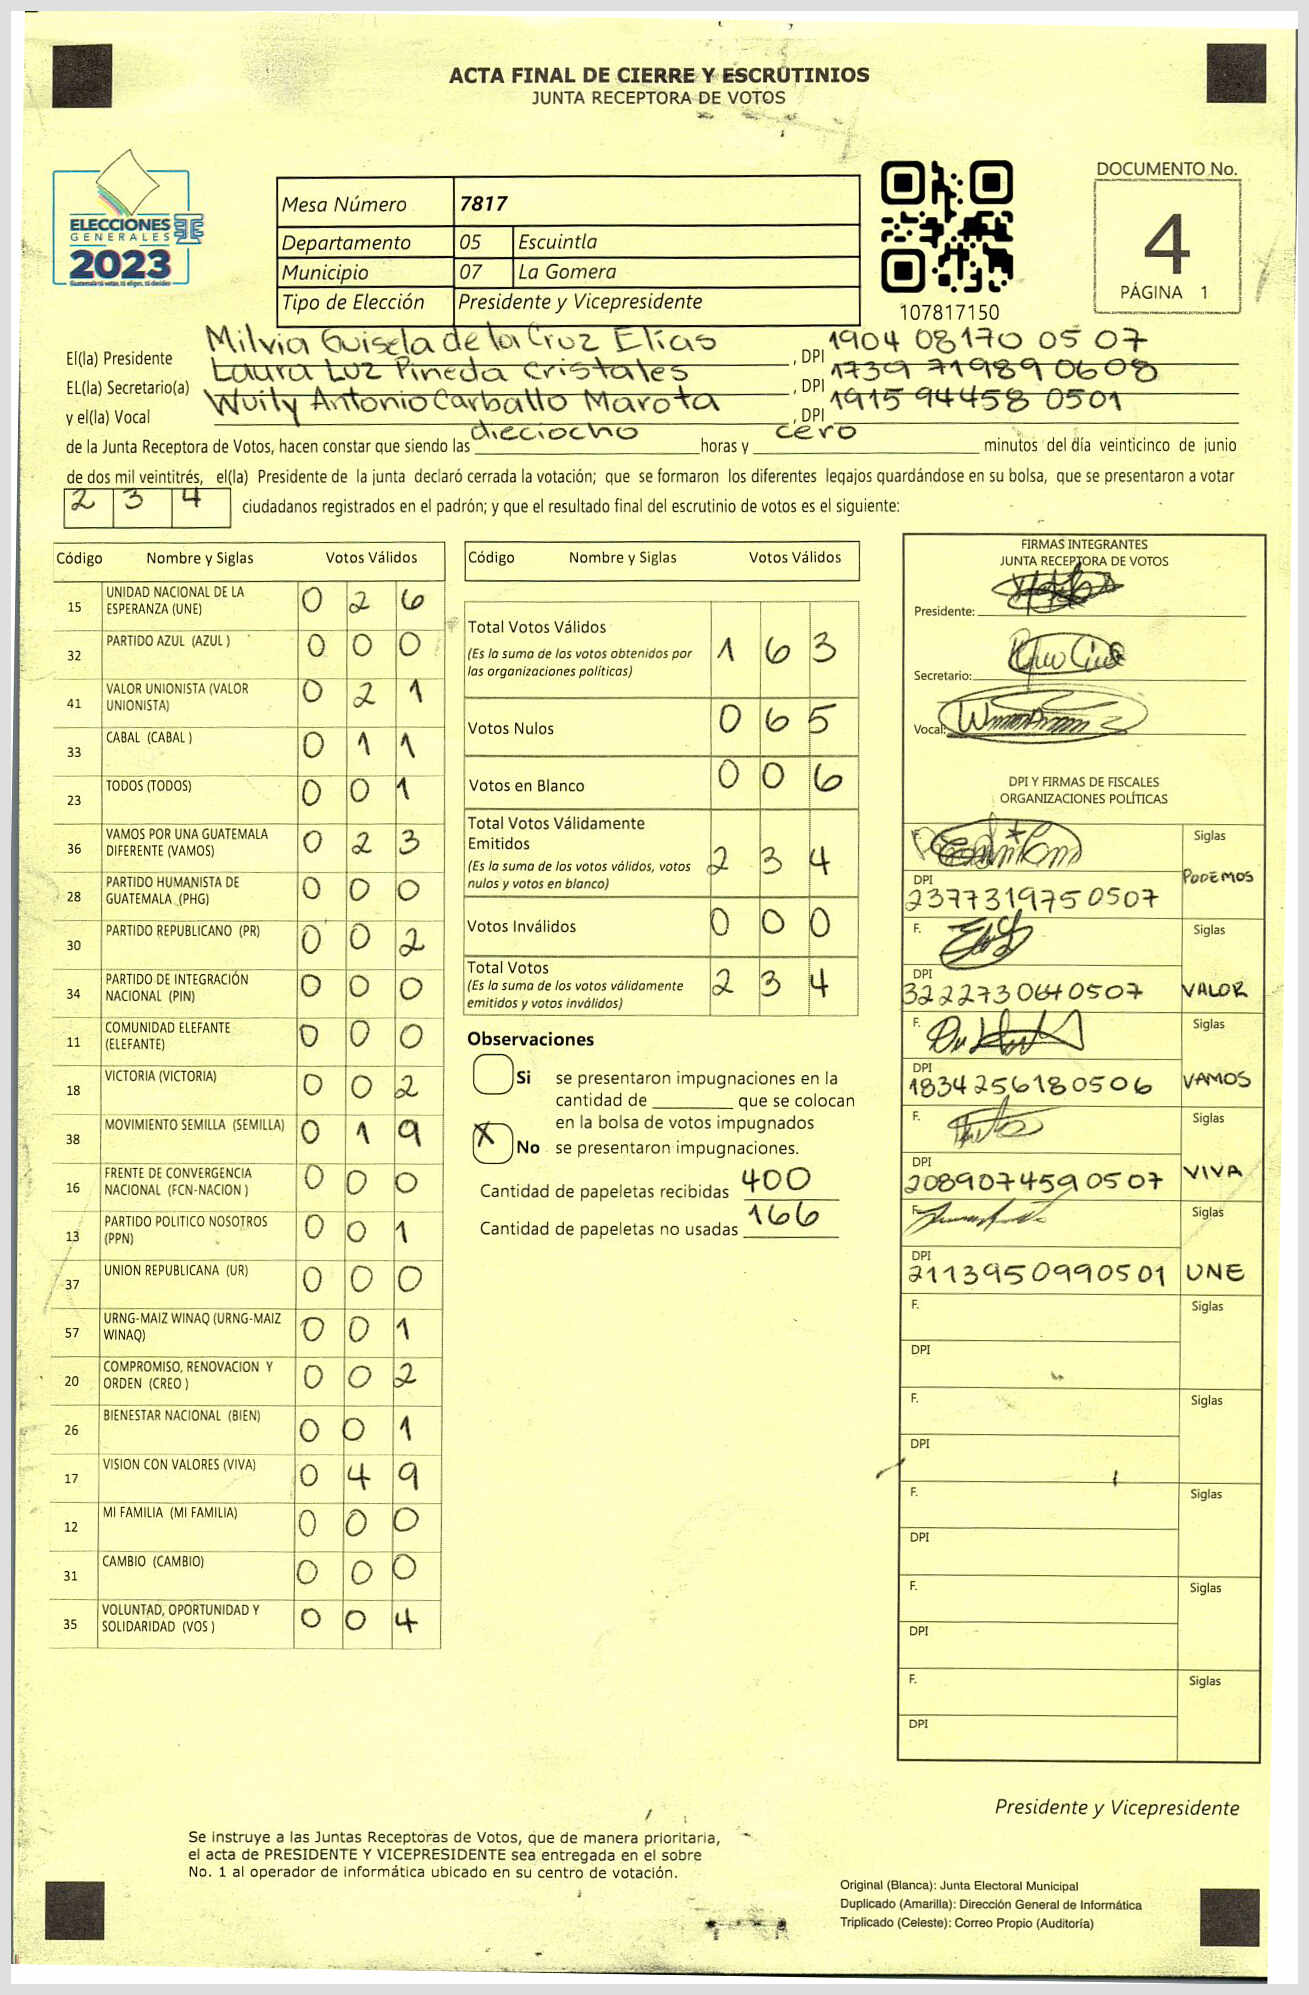 ACTA FINAL DE CIERRE Y ESCRUTINIOS
JUNTA RECEPTORA DE VOTOS
ELECCIONES
GENERALES
2023
Guatemala tú votas, tú eliges, tú decides
Mesa Número 7817
Departamento 05 Escuintla
Municipio 07 La Gomera
Tipo de Elección Presidente y Vicepresidente
107817150
DOCUMENTO No.
4
PÁGINA 1
El(la) Presidente Milvia Guisela de la Cruz Elías, DPI 1904 08170 05 07
EL(la) Secretario(a) Laura Luz Pineda Cristales, DPI 1739 71989 0608
y el(la) Vocal Wuily Antonio Carballo Marota, DPI 1915 94458 0501
de la Junta Receptora de Votos, hacen constar que siendo las dieciocho horas y cero minutos del día veinticinco de junio
de dos mil veintitrés, el(la) Presidente de la junta declaró cerrada la votación; que se formaron los diferentes legajos guardándose en su bolsa, que se presentaron a votar
2 3 4 ciudadanos registrados en el padrón; y que el resultado final del escrutinio de votos es el siguiente:
Código Nombre y Siglas Votos Válidos
15 UNIDAD NACIONAL DE LA ESPERANZA (UNE) 0 2 6
32 PARTIDO AZUL (AZUL ) 0 0 0
41 VALOR UNIONISTA (VALOR UNIONISTA) 0 2 1
33 CABAL (CABAL ) 0 1 1
23 TODOS (TODOS) 0 0 1
36 VAMOS POR UNA GUATEMALA DIFERENTE (VAMOS) 0 2 3
28 PARTIDO HUMANISTA DE GUATEMALA (PHG) 0 0 0
30 PARTIDO REPUBLICANO (PR) 0 0 2
34 PARTIDO DE INTEGRACIÓN NACIONAL (PIN) 0 0 0
11 COMUNIDAD ELEFANTE (ELEFANTE) 0 0 0
18 VICTORIA (VICTORIA) 0 0 2
38 MOVIMIENTO SEMILLA (SEMILLA) 0 1 9
16 FRENTE DE CONVERGENCIA NACIONAL (FCN-NACION ) 0 0 0
13 PARTIDO POLITICO NOSOTROS (PPN) 0 0 1
37 UNION REPUBLICANA (UR) 0 0 0
57 URNG-MAIZ WINAQ (URNG-MAIZ WINAQ) 0 0 1
20 COMPROMISO, RENOVACION Y ORDEN (CREO ) 0 0 2
26 BIENESTAR NACIONAL (BIEN) 0 0 1
17 VISION CON VALORES (VIVA) 0 4 9
12 MI FAMILIA (MI FAMILIA) 0 0 0
31 CAMBIO (CAMBIO) 0 0 0
35 VOLUNTAD, OPORTUNIDAD Y SOLIDARIDAD (VOS ) 0 0 4
Código Nombre y Siglas Votos Válidos
Total Votos Válidos 1 6 3
(Es la suma de los votos obtenidos por
las organizaciones políticas)
Votos Nulos 0 6 5
Votos en Blanco 0 0 6
Total Votos Válidamente
Emitidos 2 3 4
(Es la suma de los votos válidos, votos
nulos y votos en blanco)
Votos Inválidos 0 0 0
Total Votos 2 3 4
(Es la suma de los votos válidamente
emitidos y votos inválidos)
Observaciones
Si se presentaron impugnaciones en la
cantidad de ________ que se colocan
en la bolsa de votos impugnados
X No se presentaron impugnaciones.
Cantidad de papeletas recibidas 400
Cantidad de papeletas no usadas 166
FIRMAS INTEGRANTES
JUNTA RECEPTORA DE VOTOS
Presidente:
Secretario:
Vocal:
DPI Y FIRMAS DE FISCALES
ORGANIZACIONES POLÍTICAS
F. Siglas
DPI PODEMOS
2377319750507
F. Siglas
DPI
3222730640507 VALOR
F. Siglas
DPI
1834256180506 VAMOS
F. Siglas
DPI
2089074590507 VIVA
F. Siglas
DPI
2113950990501 UNE
F. Siglas
DPI
F. Siglas
DPI
F. Siglas
DPI
F. Siglas
DPI
F. Siglas
DPI
Presidente y Vicepresidente
Se instruye a las Juntas Receptoras de Votos, que de manera prioritaria,
el acta de PRESIDENTE Y VICEPRESIDENTE sea entregada en el sobre
No. 1 al operador de informática ubicado en su centro de votación.
Original (Blanca): Junta Electoral Municipal
Duplicado (Amarilla): Dirección General de Informática
Triplicado (Celeste): Correo Propio (Auditoría)